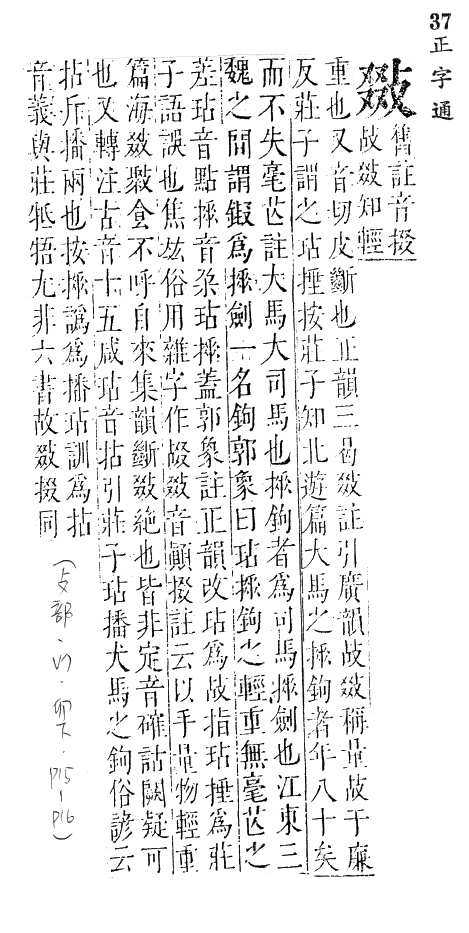 37正字通
敠
舊註音掇
敁敠知輕
重也又音切皮斷也正韻三曷敠註引廣韻敁敠稱量敁于廉
反莊子謂之玷捶按莊子知北遊篇大馬之捶鉤者年八十矣
而不失毫芒註大馬大司馬也捶鉤者為司馬捶劍也江東三
魏之間謂鍛為捶劍一名鉤郭象曰玷捶鉤之輕重無毫芒之
差玷音點捶音朶玷捶蓋郭象註正韻改玷為敁指玷捶為莊
子語誤也焦竑俗用雜字作敁敠音顛掇註云以手量物輕重
篇海敠聚食不呼自來集韻斷敠絶也皆非定音確詁闕疑可
也又轉注古音十五咸玷音拈引莊子玷播犬馬之鉤俗諺云
拈斤播兩也按捶譌為播玷訓為拈
音義與莊牴牾尤非六書故敠掇同
(攴部·下·P15-P16)